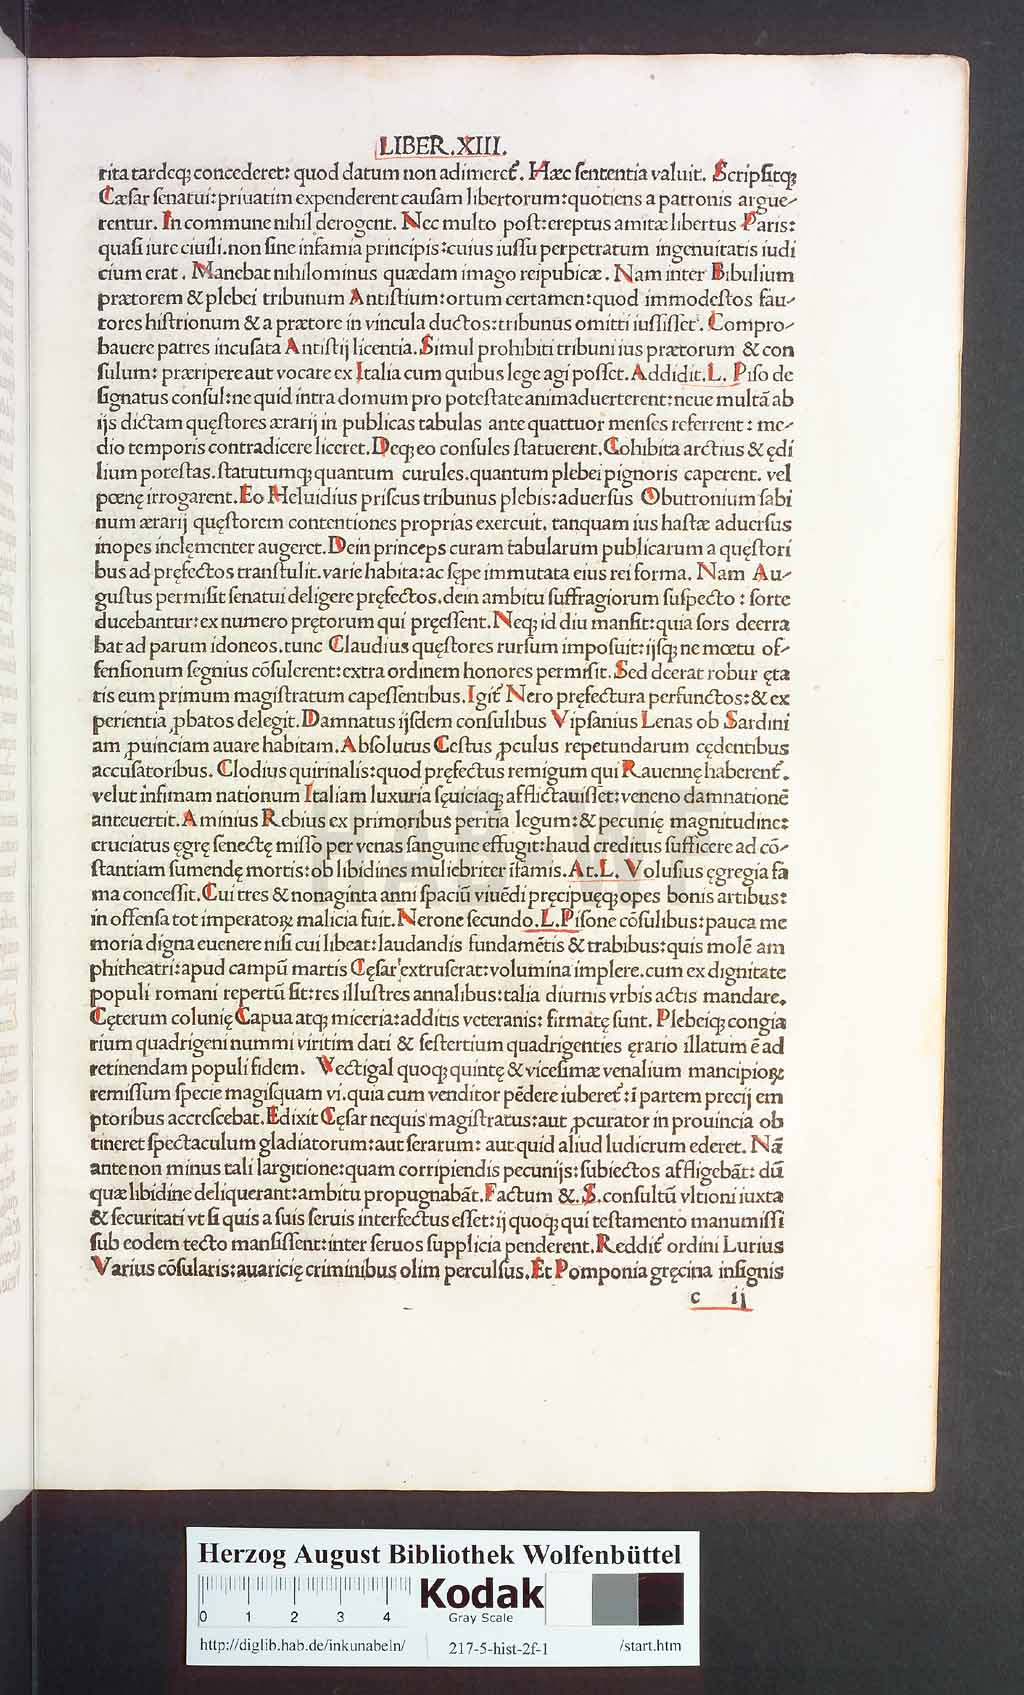 LIBER.XIII.
rita tardeqꝫ concederet: quod datum non adimeret᷑. Hæc ſententia valuit. Scripſitqꝫ
Cæſar ſenatui: priuatim expenderent cauſam libertorum: quotiens a patronis argue-
rentur. In commune nihil derogent. Nec multo poſt: ereptus amitæ libertus Paris:
quaſi iure ciuili. non ſine infamia principis: cuius iuſſu perpetratum ingenuitatis iudi
cium erat. Manebat nihilominus quædam imago reipubicæ. Nam inter Bibulium
prætorem & plebei tribunum Antiſtium: ortum certamen: quod immodeſtos fau-
tores hiſtrionum & a prætore in vincula ductos: tribunus omitti iuſſiſſet. Compro-
bauere patres incuſata Antiſtij licentia. Simul prohibiti tribuni ius prætorum & con
ſulum: præripere aut vocare ex Italia cum quibus lege agi poſſet. Addidit. L. Piſo de
ſignatus conſul: ne quid intra domum pro poteſtate animaduerterent: neue multā ab
ijs dictam quęſtores ærarij in publicas tabulas ante quattuor menſes referrent: me-
dio temporis contradicere liceret. Deqꝫ eo conſules ſtatuerent. Cohibita arctius & ędi
lium poteſtas. ſtatutumqꝫ quantum curules. quantum plebei pignoris caperent. vel
pœnę irrogarent. Eo Heluidius priſcus tribunus plebis: aduerſus Obutronium ſabi
num ærarij quęſtorem contentiones proprias exercuit. tanquam ius haſtæ aduerſus
inopes inclęmenter augeret. Dein princeps curam tabularum publicarum a quęſtori
bus ad pręfectos tranſtulit. varie habita: ac ſępe immutata eius rei forma. Nam Au-
guſtus permiſit ſenatui deligere pręfectos. dein ambitu ſuffragiorum ſuſpecto: ſorte
ducebantur: ex numero prętorum qui pręeſſent. Neqꝫ id diu manſit: quia ſors deerra
bat ad parum idoneos. tunc Claudius quęſtores rurſum impoſuit: ijſqꝫ ne mœtu of-
fenſionum ſegnius cōſulerent: extra ordinem honores permiſit. Sed deerat robur ęta
tis eum primum magiſtratum capeſſentibus. Igit᷑ Nero pręfectura perfunctos: & ex
perientia ꝓbatos delegit. Damnatus ijſdem conſulibus Vipſanius Lenas ob Sardini
am ꝓuinciam auare habitam. Abſolutus Ceſtus ꝓculus repetundarum cędentibus
accuſatoribus. Clodius quirinalis: quod pręfectus remigum qui Rauennę haberent᷑.
velut infimam nationum Italiam luxuria ſęuiciaqꝫ afflictauiſſet: veneno damnationē
anteuertit. Aminius Rebius ex primoribus peritia legum: & pecunię magnitudine:
cruciatus ęgrę ſenectę miſſo per venas ſanguine effugit: haud creditus ſufficere ad cō-
ſtantiam ſumendę mortis: ob libidines muliebriter īfamis. At. L. Voluſius ęgregia fa
ma conceſſit. Cui tres & nonaginta anni ſpaciū viuēdi pręcipuęqꝫ opes bonis artibus:
in offenſa tot imperatoꝝ malicia fuit. Nerone ſecundo. L. Piſone cōſulibus: pauca me
moria digna euenere niſi cui libeat: laudandis fundamētis & trabibus: quis molē am
phitheatri: apud campū martis Cęſar extruſerat: volumina implere. cum ex dignitate
populi romani repertū ſit: res illuſtres annalibus: talia diurnis vrbis actis mandare.
Cęterum colunię Capua atqꝫ miceria: additis veteranis: firmatę ſunt. Plebeiqꝫ congia
rium quadrigeni nummi viritim dati & ſeſtertium quadrigenties ęrario illatum ē ad
retinendam populi fidem. Vectigal quoqꝫ quintę & viceſimæ venalium mancipioꝝ
remiſſum ſpecie magiſquam vi. quia cum venditor pēdere iuberet᷑: ī partem precij em
ptoribus accreſcebat. Edixit Cęſar nequis magiſtratus: aut ꝓcurator in prouincia ob
tineret ſpectaculum gladiatorum: aut ferarum: aut quid aliud ludicrum ederet. Nā
ante non minus tali largitione: quam corripiendis pecunijs: ſubiectos affligebāt: dū
quæ libidine deliquerant: ambitu propugnabāt. Factum &. S. conſultū vltioni iuxta
& ſecuritati vt ſi quis a ſuis ſeruis interfectus eſſet: ij quoqꝫ qui teſtamento manumiſſi
ſub eodem tecto manſiſſent: inter ſeruos ſupplicia penderent. Reddit᷑ ordini Lurius
Varius cōſularis: auaricię criminibus olim perculſus. Et Pomponia gręcina inſignis
c ij
Herzog August Bibliothek Wolfenbüttel
0 1 2 3 4
Kodak
Gray Scale
http://diglib.hab.de/inkunabeln/ 217-5-hist-2f-1 /start.htm
HAB-WF